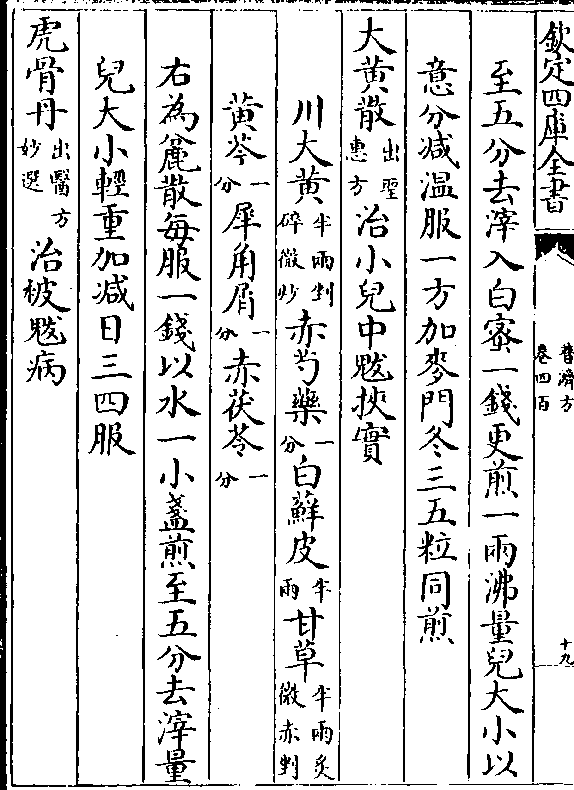 欽定四庫全書
普濟方
卷四百
十九
至五分去滓入白蜜一錢更煎一兩沸量兒大小以
意分減温服一方加麥門冬三五粒同煎
大黄散出聖惠方治小兒中鬾挾實
川大黄半兩剉碎微炒赤芍藥一分白蘚皮半兩甘草半兩炙微赤剉
黄芩一分犀角屑一分赤茯苓一分
右為麄散每服一錢以水一小盞煎至五分去滓量
兒大小輕重加減日三四服
虎骨丹出醫方妙選治被鬾病